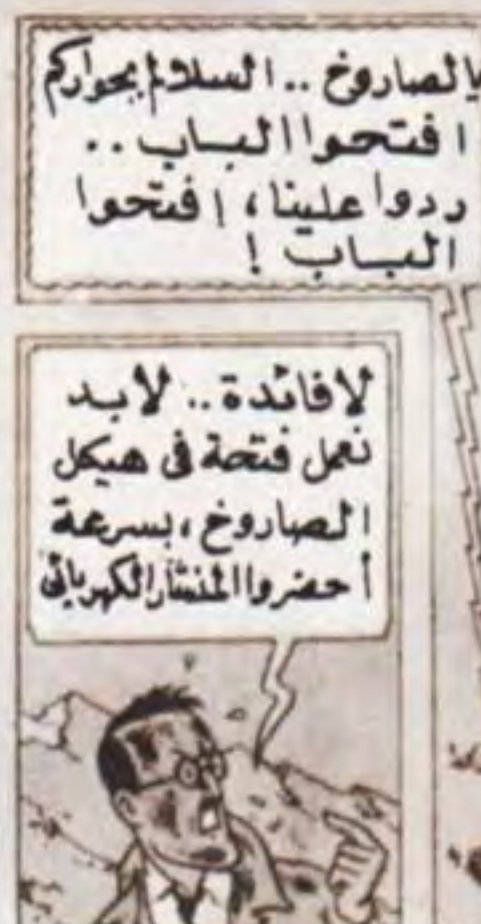 يالصاروخ .. السلالم بجواركم
افتحوا الباب ..
ردوا علينا، افتحوا
الباب !
لافائدة .. لابد
نعمل فتحة فى هيكل
الصاروخ، بسرعة
أحضروا المنشار الكهربائى